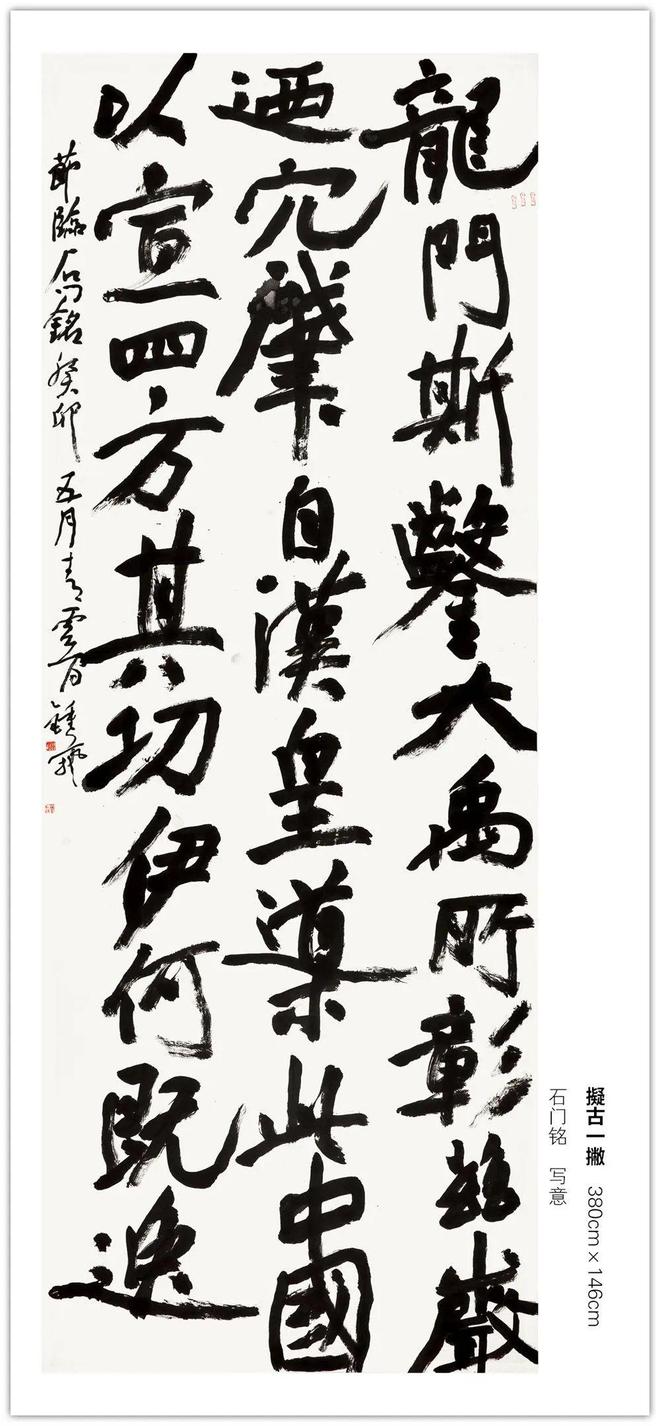 龍門斯鑿大禹所彰茲巖
迺穴肇自漢皇導此中國
以宣四方其功伊何既逸
節臨石門銘癸卯五月青雲
擬古一撇 380cm×146cm
石门铭 写意